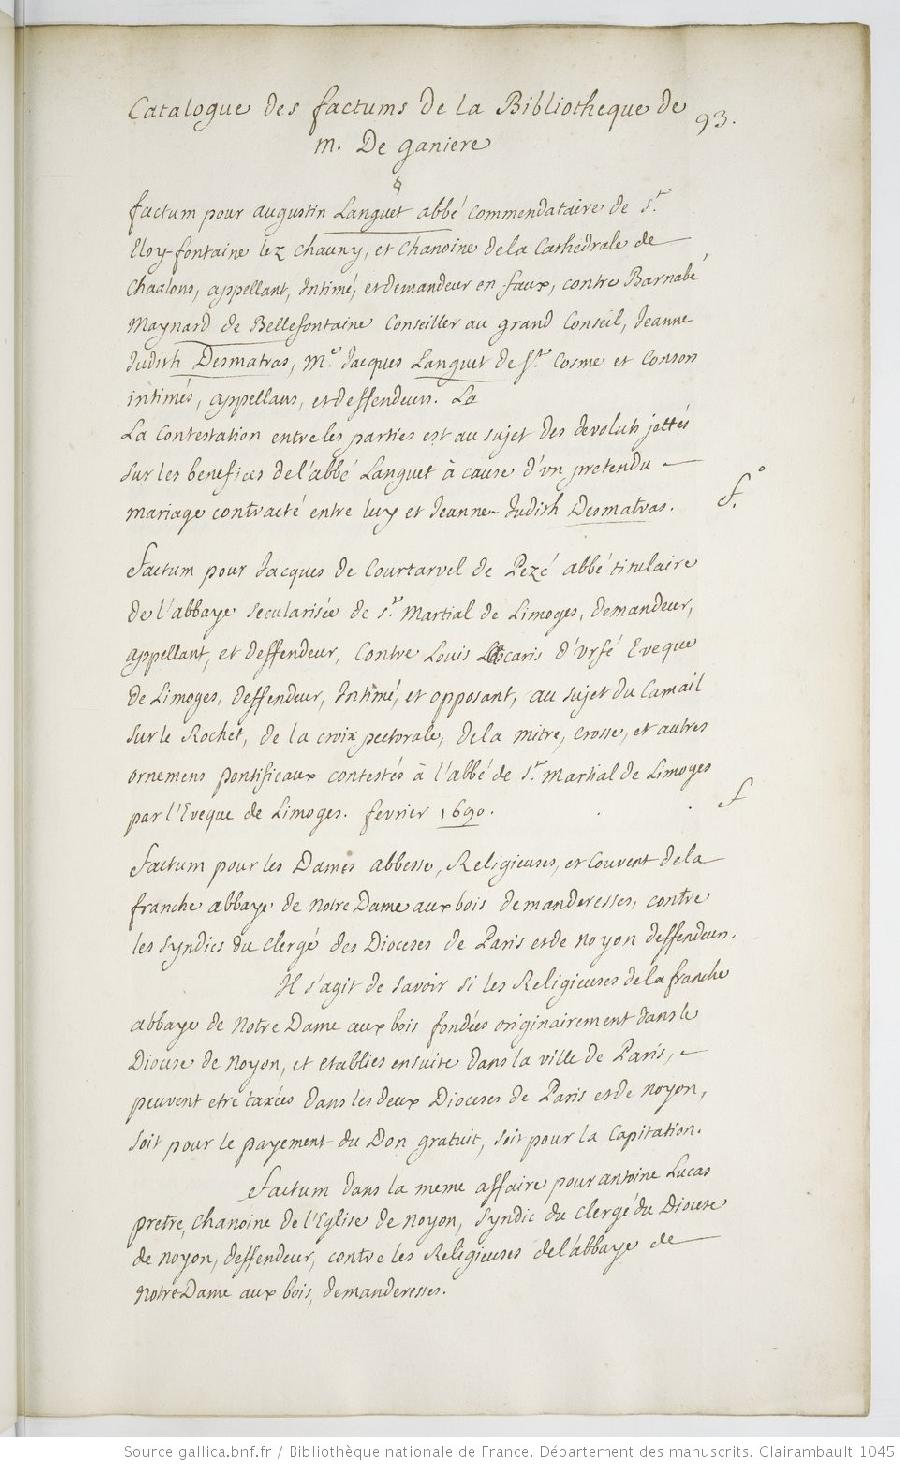 Catalogue des factums de la Bibliotheque de
93.
m. De ganiere
factum pour augustin Languet abbé commendataire de St.
Eloy-fontaine lez chauny, et chanoine de la Cathedrale de
Chaalons, appellant, Intimé, et demandeur en faux, contre Barnabé
Maynard de Bellefontaine Conseiller au grand Conseil, Jeanne
Judith Desmatras, Me. Jacques Languet de St. Cosme et Conson
intimés, appellans, et deffendeurs. La
La Contestation entre les parties est au sujet des devoluts jettés
sur les benefices de l'abbé Languet à cause d'un pretendu
mariage contracté entre luy et Jeanne Judith Desmatras.
f.°
factum pour Jacques de Courtarvel de Pezé abbé titulaire
de l'abbaye secularisée de St. Martial de Limoges, demandeur,
appellant, et deffendeur, Contre Louis Lascaris d'Urfé Eveque
de Limoges, deffendeur, Intimé, et opposant, au sujet du Camail
sur le Rochet, de la croix pectorale, de la mitre, crosse, et autres
ornemens pontificaux contestés à l'abbé de St. Martial de Limoges
par l'Eveque de Limoges. fevrier 1690.
f
Factum pour les Dames abbesse, Religieuses, et Couvent de la
franche abbaye de Notre Dame aux bois demanderesses, contre
les syndics du Clergé des Dioceses de Paris et de Noyon deffendeurs.
Il s'agit de savoir si les Religieuses de la franche
abbaye de Notre Dame aux bois fondées originairement dans le
Diocese de Noyon, et etablies ensuite dans la ville de Paris,
peuvent etre taxées dans les deux Dioceses de Paris et de Noyon,
soit pour le payement du Don gratuit, soit pour la Capitation.
Factum dans la meme affaire pour antoine Lucas
pretre, Chanoine de l'Eglise de Noyon, syndic du Clergé du Diocese
de Noyon, deffendeur, contre les Religieuses de l'abbaye de
Notre Dame aux bois, demanderesses.
Source gallica.bnf.fr / Bibliothèque nationale de France. Département des manuscrits. Clairambault 1045